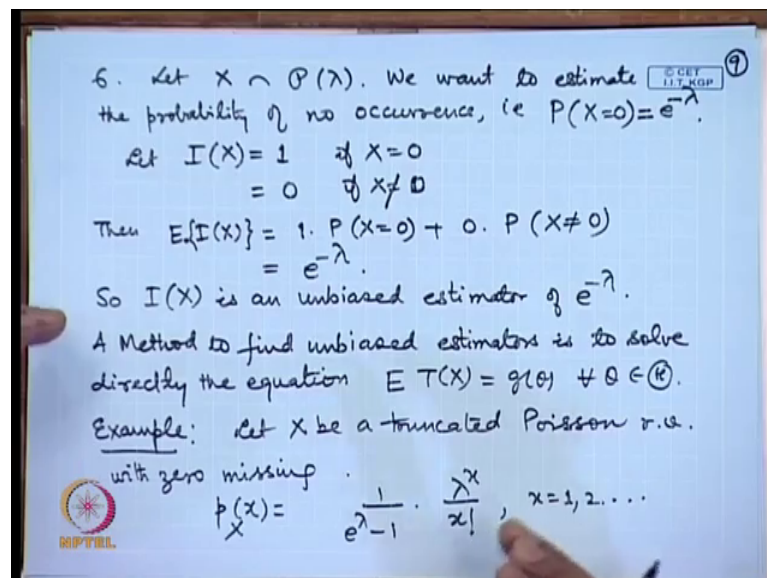 6. Let X ~ P(λ). We want to estimate
© CET
I.I.T. KGP
9
the probability of no occurrence, ie P(X=0)=e^{-λ}.
Let I(X) = 1 if X=0
= 0 if X≠0
Then E{I(X)} = 1. P(X=0) + 0. P(X≠0)
= e^{-λ}.
So I(X) is an unbiased estimator of e^{-λ}.
A Method to find unbiased estimators is to solve
directly the equation E T(X) = g(θ) ∀ θ ∈ Ⓗ.
Example: Let X be a truncated Poisson r.v.
with zero missing.
p_X(x) = 1/(e^λ-1) · λ^x/x!, x=1,2....
NPTEL